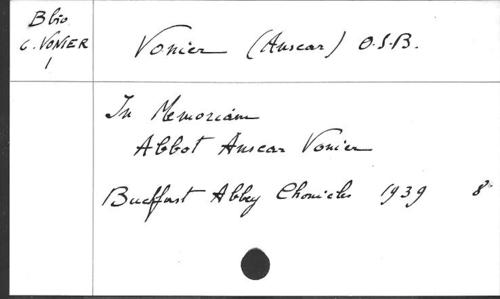 Bbio
C. VONIER
1
Vonier (Anscar) O.S.B.
In Memoriam
Abbot Anscar Vonier
Buckfast Abbey Chronicle 1939 8°